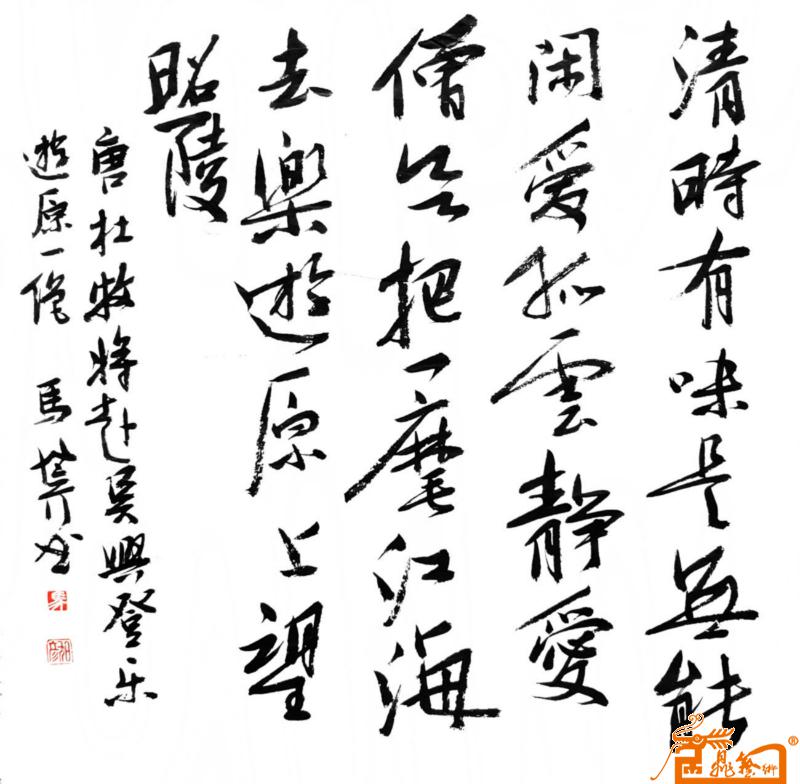 清時有味是無能
闲愛孤雲靜愛
僧欲把一麾江海
去樂遊原上望
昭陵
唐杜牧將赴吳興登乐
遊原一絕 馬